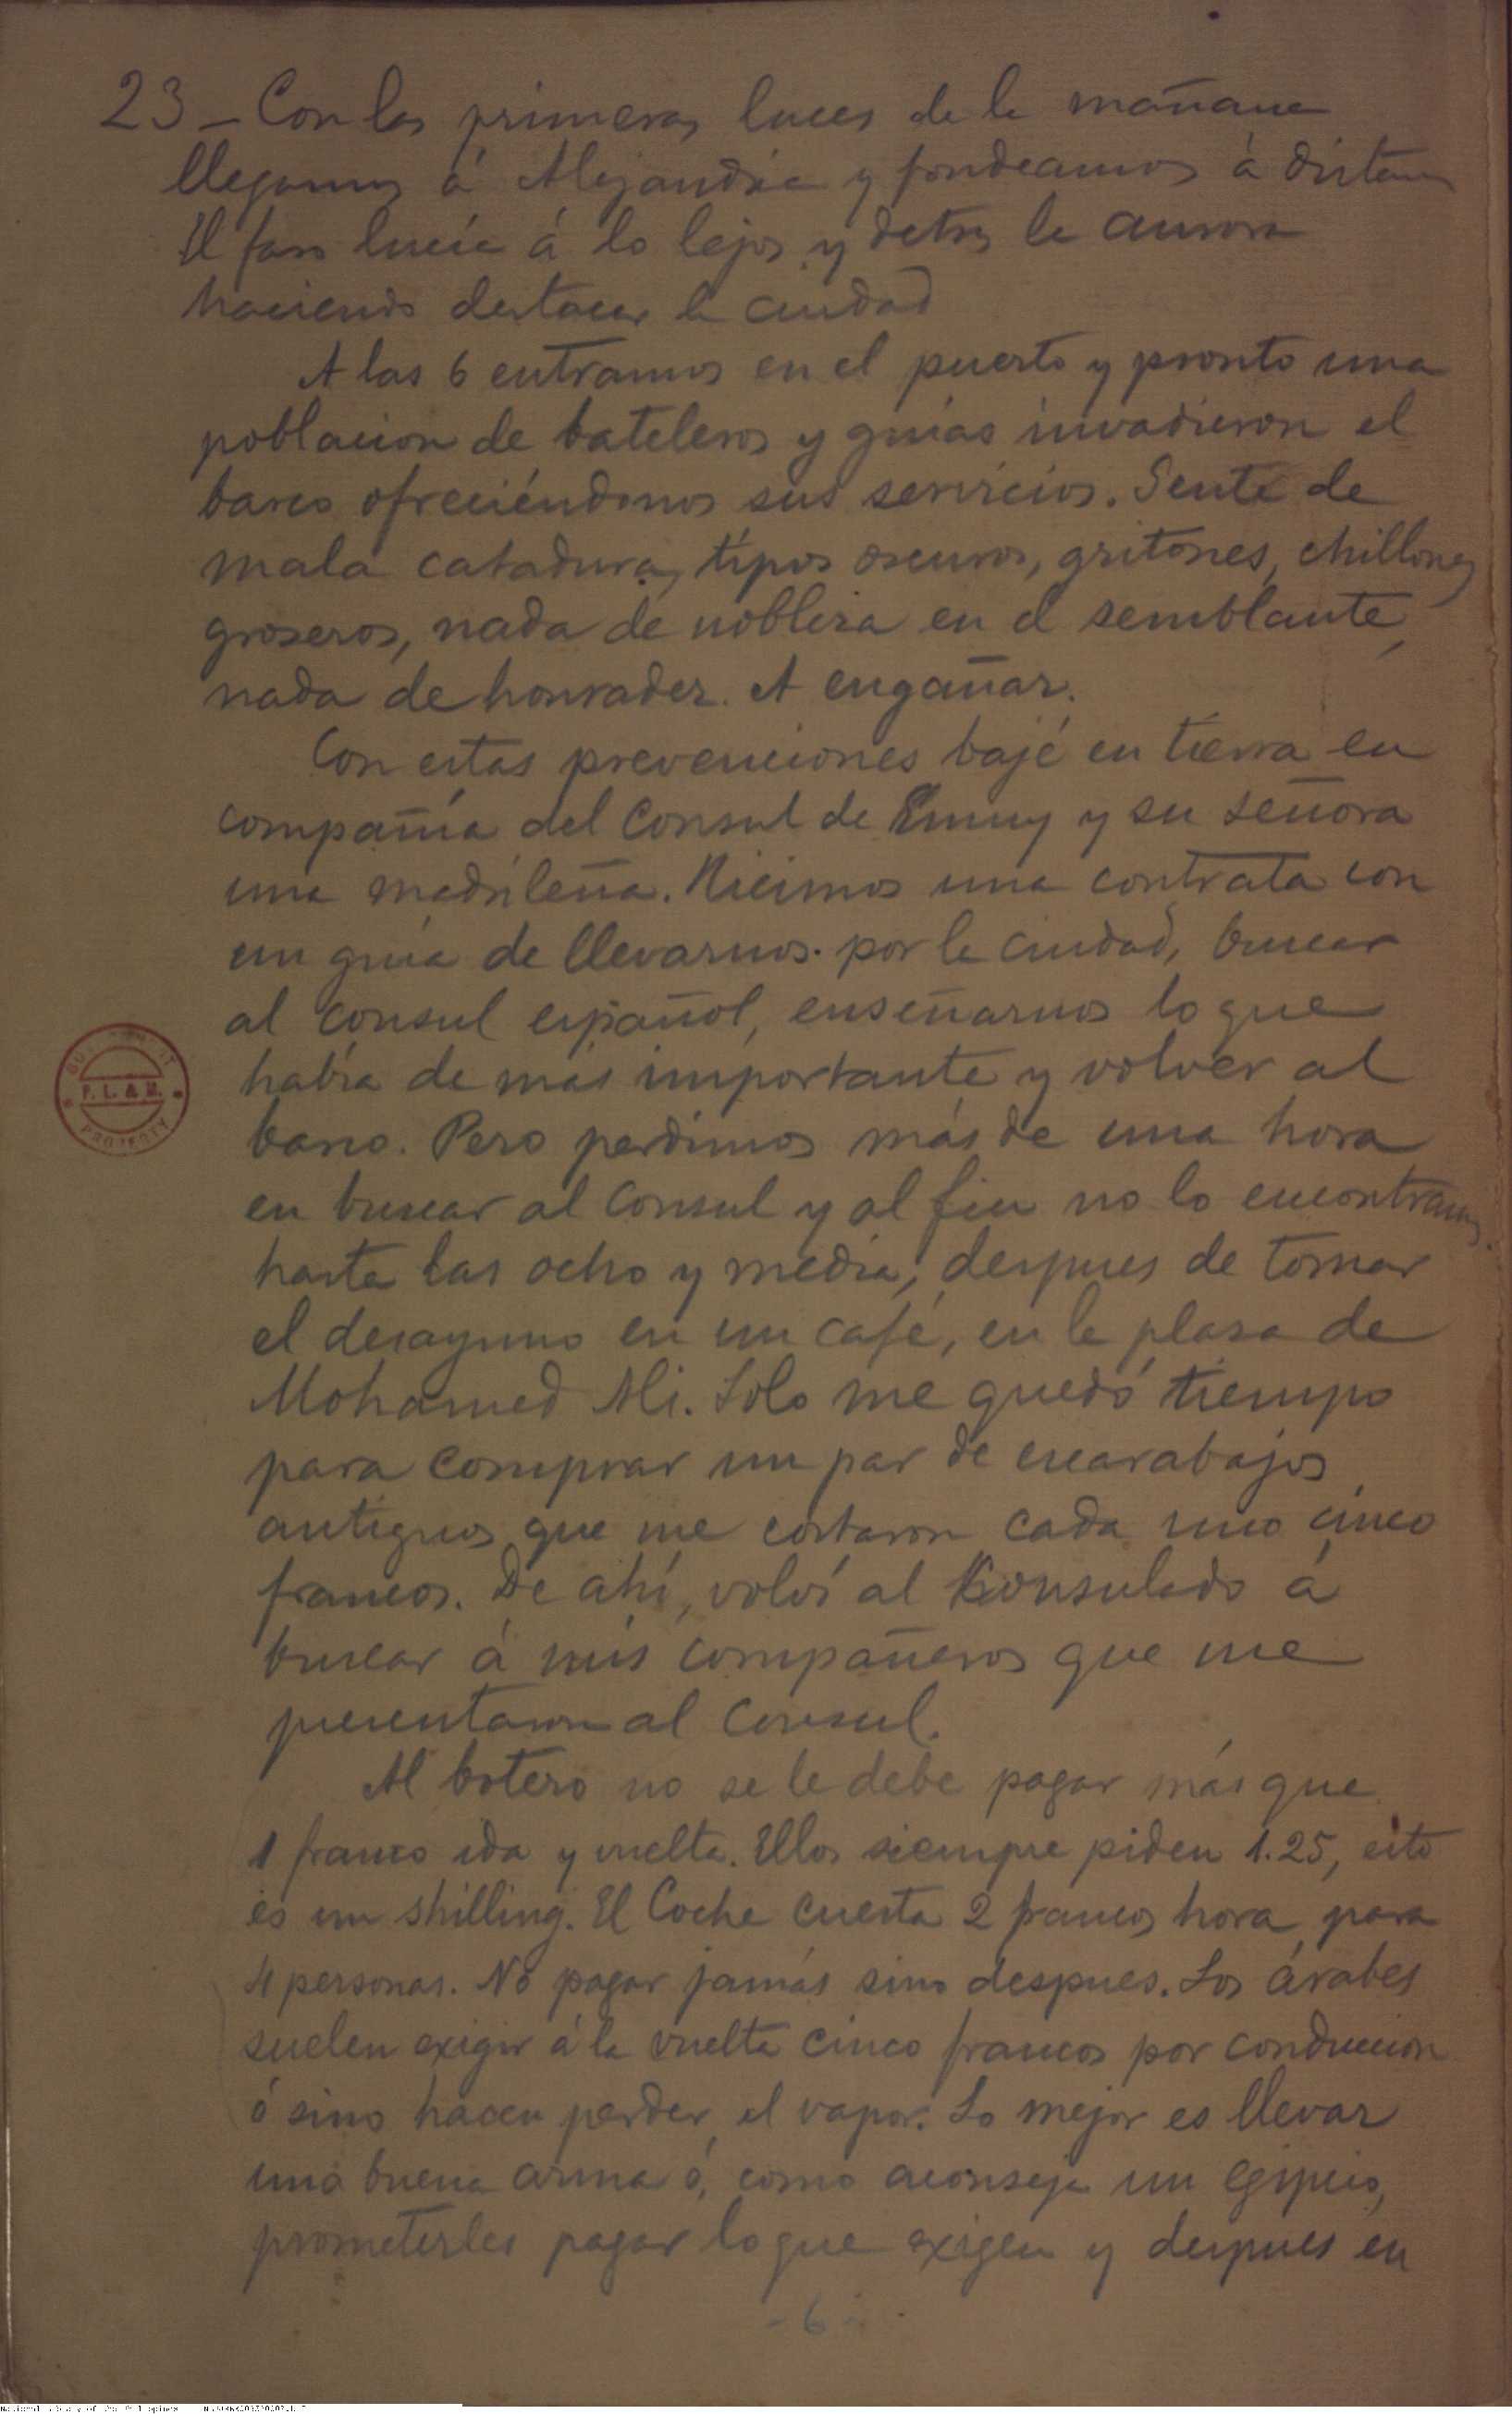 23 – Con las primeras luces de la mañana
llegamos á Alejandría y fondeamos á distan
El faro lucía á lo lejos y detras la aurora
haciendo destacar la ciudad
A las 6 entramos en el puerto y pronto una
poblacion de bateleros y guías invadieron el
barco ofreciéndonos sus servicios. Gente de
mala catadura, tipos oscuros, gritones, chillones
groseros, nada de nobleza en el semblante,
nada de honradez. A engañar.
Con estas prevenciones bajé en tierra en
compañía del Consul de y su señora
una madrileña. Hicimos una contrata con
un guía de llevarnos por la ciudad, buscar
al consul español, enseñarnos lo que
había de más importante y volver al
barco. Pero perdimos más de una hora
en buscar al Consul y al fin no lo encontramos
hasta las ocho y media, despues de tomar
el desayuno en un café, en la plasa de
Mohamed Ali. Solo me quedó tiempo
para comprar un par de escarabajos
antiguos que me costaron cada uno cinco
francos. De ahí, volví al Konsulado á
buscar á mis compañeros que me
presentaron al Consul.
Al botero no se le debe pagar más que
1 franco ida y vuelta. Ellos siempre piden 1.25, esto
es un shilling. El Coche cuesta 2 francos hora para
4 personas. No pagar jamás sino despues. Los árabes
suelen exigir á la vuelta cinco francos por conduccion
ó sino hacen perder el vapor. Lo mejor es llevar
una buena arma ó, como aconseja un Egipcio,
prometerles pagar lo que exigen y despues en
- 6 -
P. L. & M.
PROPERTY